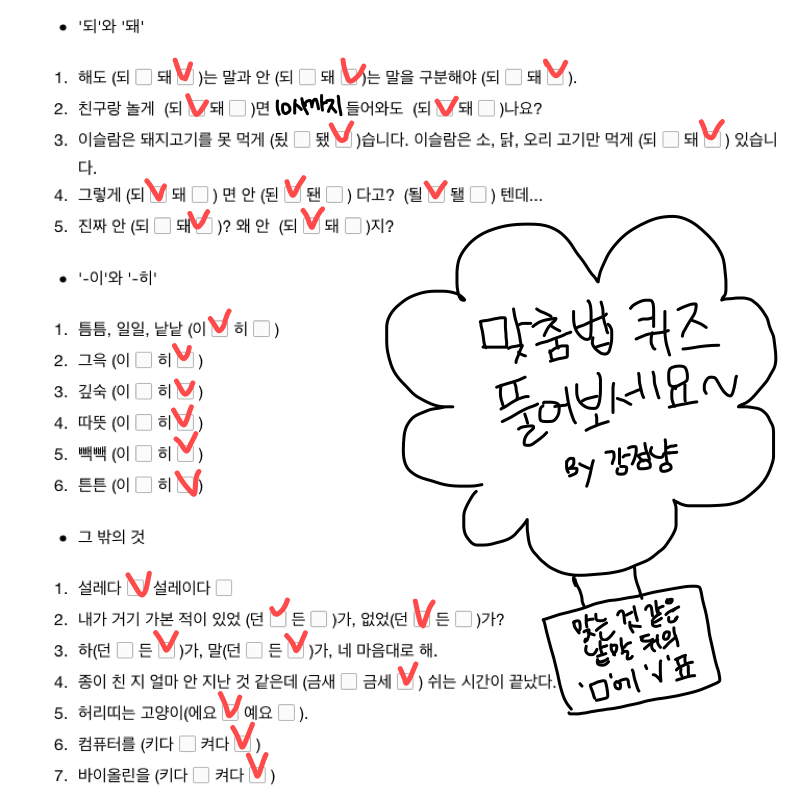 • '되'와 '돼'
1. 해도 (되 ☐ 돼 ☑ )는 말과 안 (되 ☐ 돼 ☑ )는 말을 구분해야 (되 ☐ 돼 ☑ ).
2. 친구랑 놀게 (되 ☑ 돼 ☐ )면 10시까지 들어와도 (되 ☑ 돼 ☐ )나요?
3. 이슬람은 돼지고기를 못 먹게 (됬 ☐ 됐 ☑ )습니다. 이슬람은 소, 닭, 오리 고기만 먹게 (되 ☐ 돼 ☑ ) 있습니
다.
4. 그렇게 (되 ☑ 돼 ☐ ) 면 안 (된 ☑ 됀 ☐ ) 다고? (될 ☑ 됄 ☐ ) 텐데...
5. 진짜 안 (되 ☐ 돼 ☑ )? 왜 안 (되 ☑ 돼 ☐ )지?
• '-이'와 '-히'
1. 틈틈, 일일, 낱낱 (이 ☑ 히 ☐ )
2. 그윽 (이 ☐ 히 ☑ )
3. 깊숙 (이 ☐ 히 ☑ )
4. 따뜻 (이 ☐ 히 ☑ )
5. 빽빽 (이 ☐ 히 ☑ )
6. 튼튼 (이 ☐ 히 ☑ )
• 그 밖의 것
1. 설레다 ☑ 설레이다 ☐
2. 내가 거기 가본 적이 있었 (던 ☑ 든 ☐ )가, 없었(던 ☑ 든 ☐ )가?
3. 하(던 ☐ 든 ☑ )가, 말(던 ☐ 든 ☑ )가, 네 마음대로 해.
4. 종이 친 지 얼마 안 지난 것 같은데 (금새 ☐ 금세 ☑ ) 쉬는 시간이 끝났다.
5. 허리띠는 고양이(에요 ☑ 예요 ☐ ).
6. 컴퓨터를 (키다 ☐ 켜다 ☑ )
7. 바이올린을 (키다 ☐ 켜다 ☑ )
맞춤법 퀴즈
풀어보세요~
By 강점냥
맞는 것 같은
낱말 뒤의
'□'에 '√'표